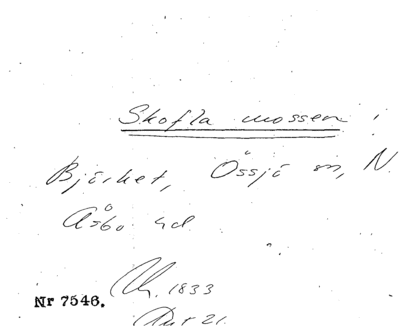 Skofla mossen i
Björket, Össjö sn, N.
Åsbo hd
Nr 7546. Ch. 1833
Akt 21.